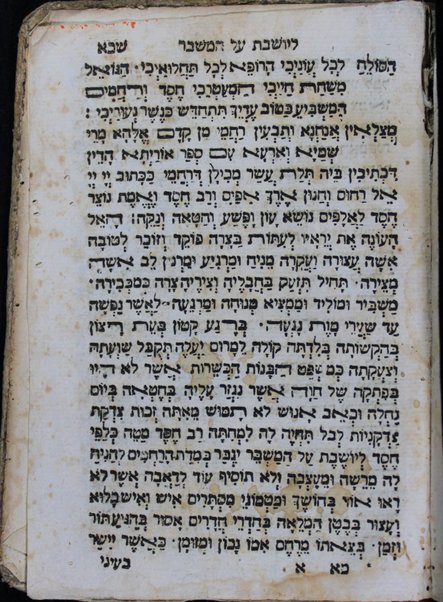 ליושבת על המשבר שכא
הסולח לכל עוניכי הרופא לכל תחלואיכי הגואל
משחת חייכי המעטרכי חסד ורחמים
המשביע בטוב עדיך תתחדש כנשר נעוריכי
מצלאין אנחנא ותבעין רחמי מן קדם אלהא מרי
שמיא וארעא עם ספר אורייתא הדין
דכתיבין ביה תלת עשר מכילן דרחמי ככתוב יי יי
אל רחום וחנון ארך אפים ורב חסד ואמת נוצר
חסד לאלפים נושא עון ופשע וחטאה ונקה: האל
העונה את יראיו לעתות בצרה פוקד וזוכר לטובה
אשה עצורה ועקרה מניח ומרגיע ומרנין לב אשה
מצירה. תחיל תזעק בחבליה וציריה צרה כמבכירה.
משביר ומוליד וממציא מנוחה ומרגעה. לאשר נפשה
עד שערי מות נגעה. ברגע קטון בעת רצון
בהקשותה בלדתה קולה למרום יעלה תקבל שועתה
וצעקתה כמשפט הבנות הכשרות אשר לא היו
בפתקה של חוה אשר נגזר עליה בחטאה ביום
נחלה וכאב אנוש לא תמוש מאתה זכות צדקת
צדקניות לבל תהיה לה למחתה רב חסד מטה כלפי
חסד ליושבת על המשבר יגבר במדת הרחמים להניח
לה מרעה ומעצבה ולא תוסיף עוד לדאבה אשר לא
ראו אור בחושך ומטמוני מסתרים איש ואיש כלוא
ועצור בבטן המלאה בחדרי חדרים אסור בהגיע תור
וזמן. בצאתו מרחם אמו נכון ומזומן. כאשר יישר
מא א בעיני